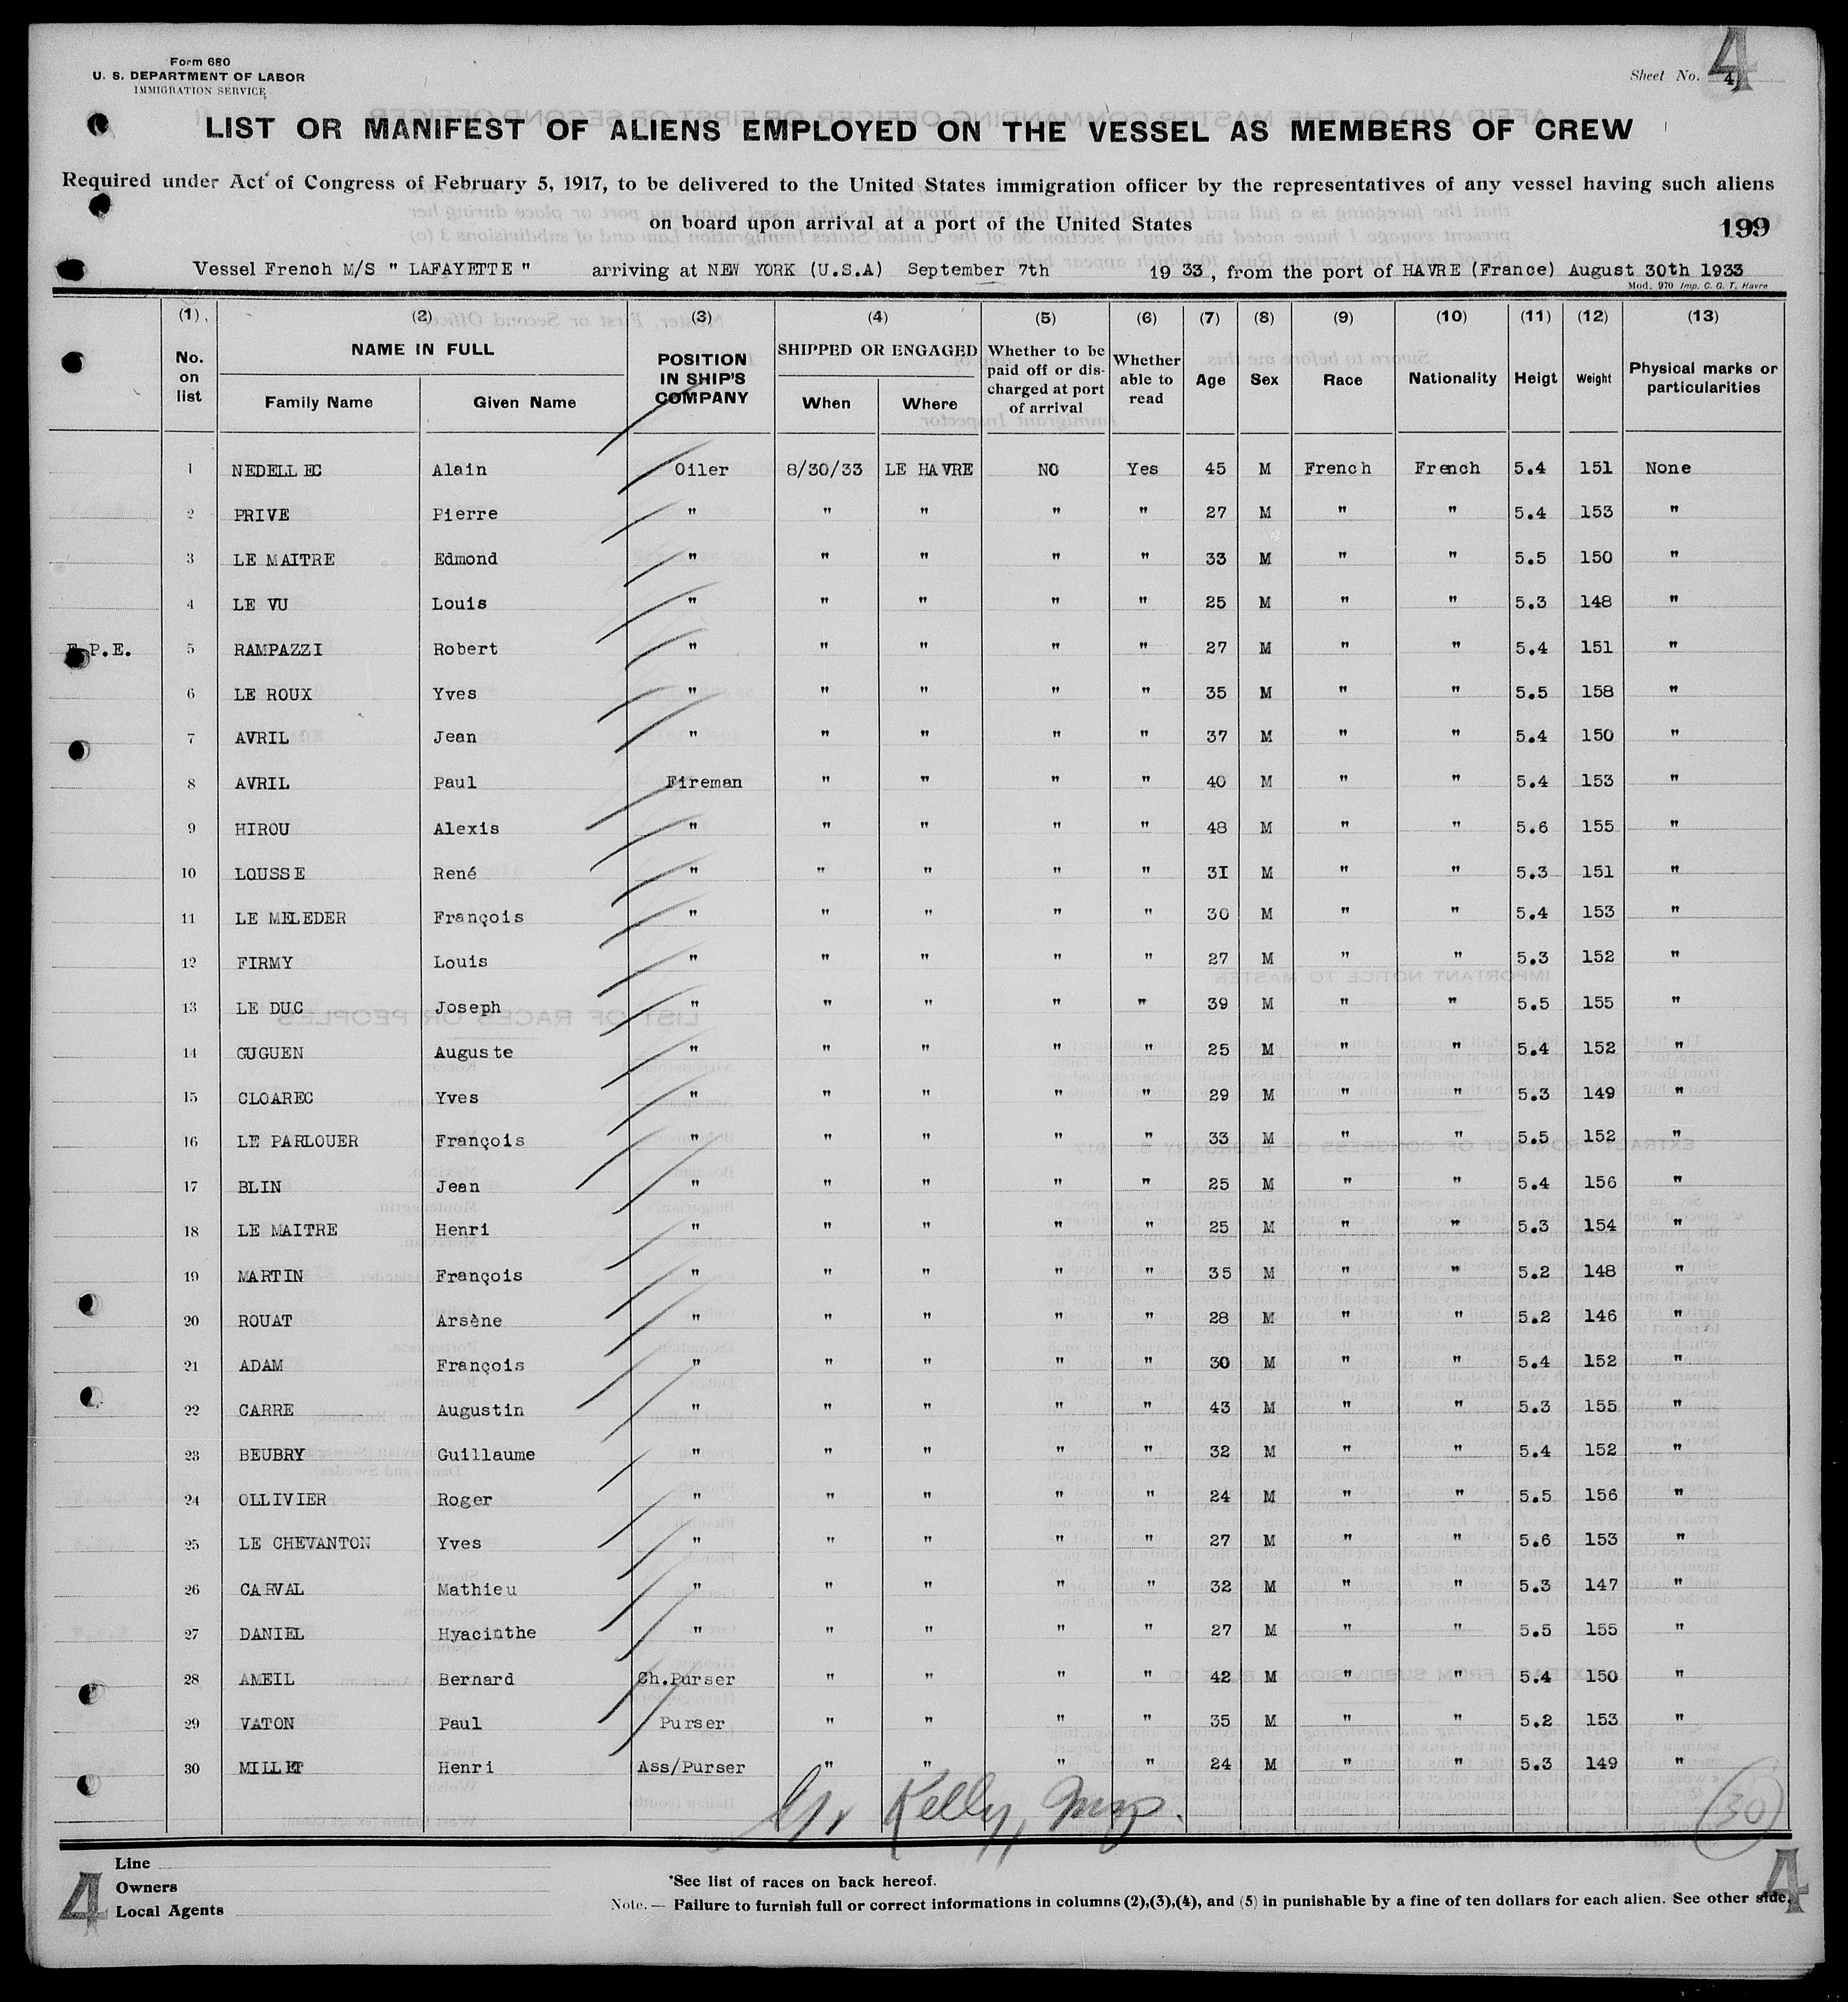 Form 680
U. S. DEPARTMENT OF LABOR
IMMIGRATION SERVICE
Sheet No. 4
4
LIST OR MANIFEST OF ALIENS EMPLOYED ON THE VESSEL AS MEMBERS OF CREW
Required under Act of Congress of February 5, 1917, to be delivered to the United States immigration officer by the representatives of any vessel having such aliens
on board upon arrival at a port of the United States
199
Vessel French M/S " LAFAYETTE " arriving at NEW YORK (U.S.A) September 7th 1933, from the port of HAVRE (France) August 30th 1933
Mod. 970 Imp. C. G. T. Havre
(1) (2) (3) (4) (5) (6) (7) (8) (9) (10) (11) (12) (13)
No. on list NAME IN FULL Family Name Given Name POSITION IN SHIP'S COMPANY SHIPPED OR ENGAGED When Where Whether to be paid off or discharged at port of arrival Whether able to read Age Sex Race Nationality Heigt Weight Physical marks or particularities
1 NEDELLEC Alain Oiler 8/30/33 LE HAVRE NO Yes 45 M French French 5.4 151 None
2 PRIVE Pierre " " " " " 27 M " " 5.4 153 "
3 LE MAITRE Edmond " " " " " 33 M " " 5.5 150 "
4 LE VU Louis " " " " " 25 M " " 5.3 148 "
P.E. 5 RAMPAZZI Robert " " " " " 27 M " " 5.4 151 "
6 LE ROUX Yves " " " " " 35 M " " 5.5 158 "
7 AVRIL Jean " " " " " 37 M " " 5.4 150 "
8 AVRIL Paul Fireman " " " " 40 M " " 5.4 153 "
9 HIROU Alexis " " " " " 48 M " " 5.6 155 "
10 LOUSSE René " " " " " 31 M " " 5.3 151 "
11 LE MELEDER François " " " " " 30 M " " 5.4 153 "
12 FIRMY Louis " " " " " 27 M " " 5.3 152 "
13 LE DUC Joseph " " " " " 39 M " " 5.5 155 "
14 GUGUEN Auguste " " " " " 25 M " " 5.4 152 "
15 CLOAREC Yves " " " " " 29 M " " 5.3 149 "
16 LE PARLOUER François " " " " " 33 M " " 5.5 152 "
17 BLIN Jean " " " " " 25 M " " 5.4 156 "
18 LE MAITRE Henri " " " " " 25 M " " 5.3 154 "
19 MARTIN François " " " " " 35 M " " 5.2 148 "
20 ROUAT Arsène " " " " " 28 M " " 5.2 146 "
21 ADAM François " " " " " 30 M " " 5.4 152 "
22 CARRE Augustin " " " " " 43 M " " 5.3 155 "
23 BEUBRY Guillaume " " " " " 32 M " " 5.4 152 "
24 OLLIVIER Roger " " " " " 24 M " " 5.5 156 "
25 LE CHEVANTON Yves " " " " " 27 M " " 5.6 153 "
26 CARVAL Mathieu " " " " " 32 M " " 5.3 147 "
27 DANIEL Hyacinthe " " " " " 27 M " " 5.5 155 "
28 AMEIL Bernard Ch.Purser " " " " 42 M " " 5.4 150 "
29 VATON Paul Purser " " " " 35 M " " 5.2 153 "
30 MILLET Henri Ass/Purser " " " " 24 M " " 5.3 149 "
Kelly,
30
Line
Owners
Local Agents
4
*See list of races on back hereof.
Note. — Failure to furnish full or correct informations in columns (2),(3),(4), and (5) in punishable by a fine of ten dollars for each alien. See other side.
4